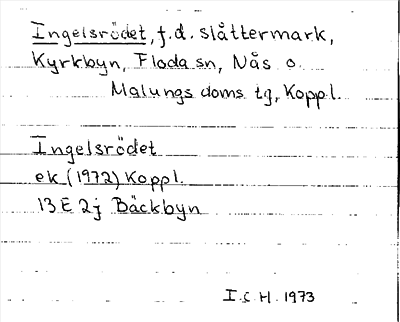 Ingelsrödet, f.d. slåttermark,
Kyrkbyn, Floda sn, Nås o.
Malungs doms tg, Koppl.
Ingelsrödet
ek (1972) Koppl.
13 E 2j Bäckbyn
I.S.H. 1973